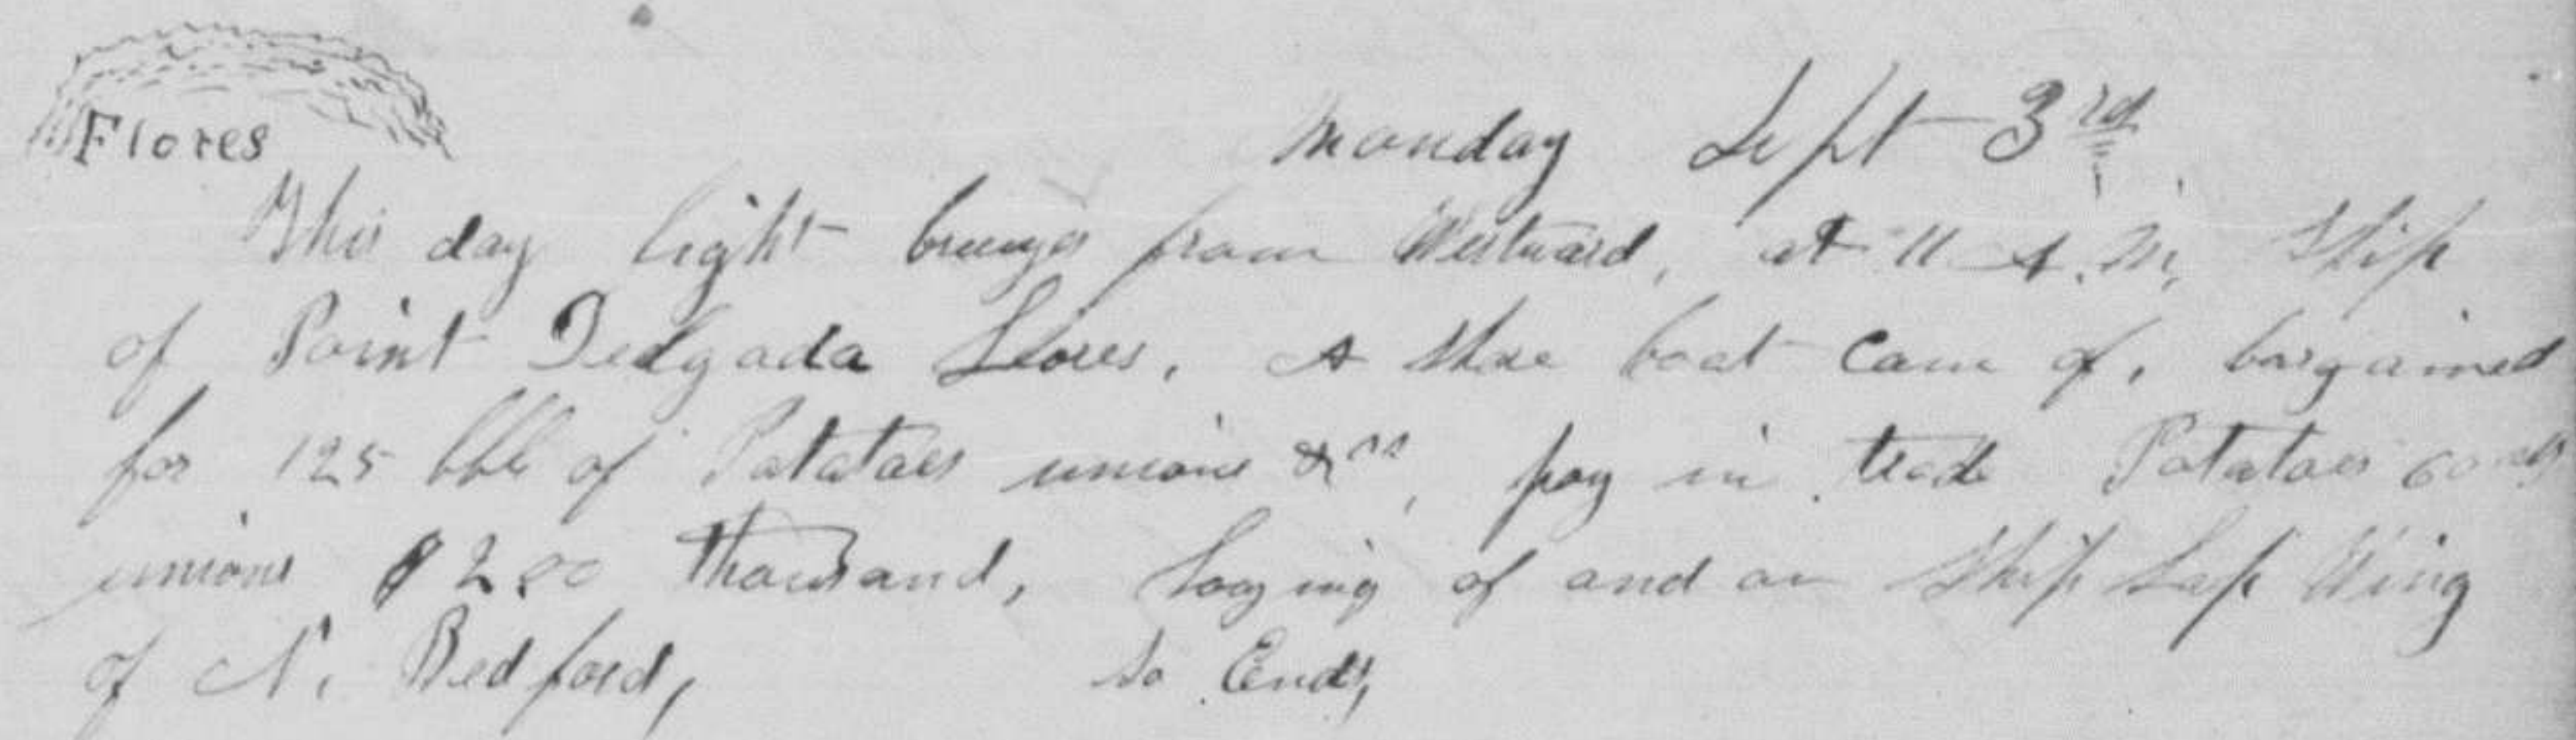 Flores
Monday Sept 3rd
This day light breezes from Westward, at 11 A.M, Ship
of Point Delgada Flores. A Shore boat came of, bargained
for 125 bbl of Patatoes unions &cc, pay in trade Patatoes 60 cts
unions $2.00 thousand, laying of and on Ship Lap Wing
of N. Bedford, So Ends,